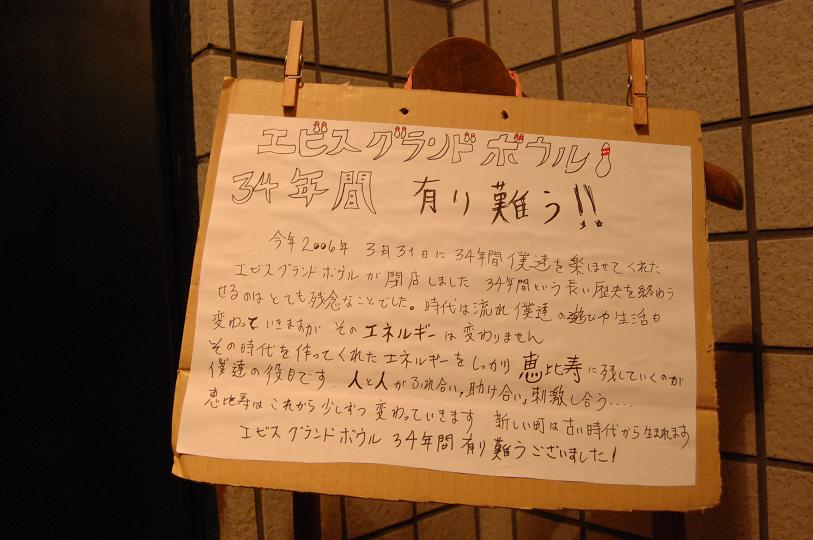 エビスグランドボウル
34年間 有り難う!!
今年2006年 3月31日に 34年間 僕達を楽ませてくれた
エビスグランドボウルが閉店しました 34年間という長い歴史を終わう
せるのはとても残念なことでした。時代は流れ僕達の遊びや生活も
変わって いきますが そのエネルギーは変わりません
その時代を作ってくれたエネルギーをしっかり恵比寿に残していくのが
僕達の役目です. 人と人がふれ合い, 助け合い, 刺激し合う....
恵比寿は これから少しずつ変わっていきます 新しい町は古い時代から生まれます
エビスグランドボウル 34年間 有り難うございました!